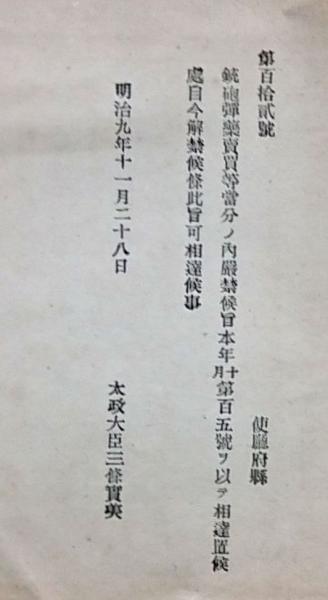 第百拾貳號
使廳府縣
銃砲彈藥賣買等當分ノ內嚴禁候旨本年十月第百五號ヲ以テ相達置候
處自今解禁候條此旨可相達候事
明治九年十一月二十八日
太政大臣三條實美